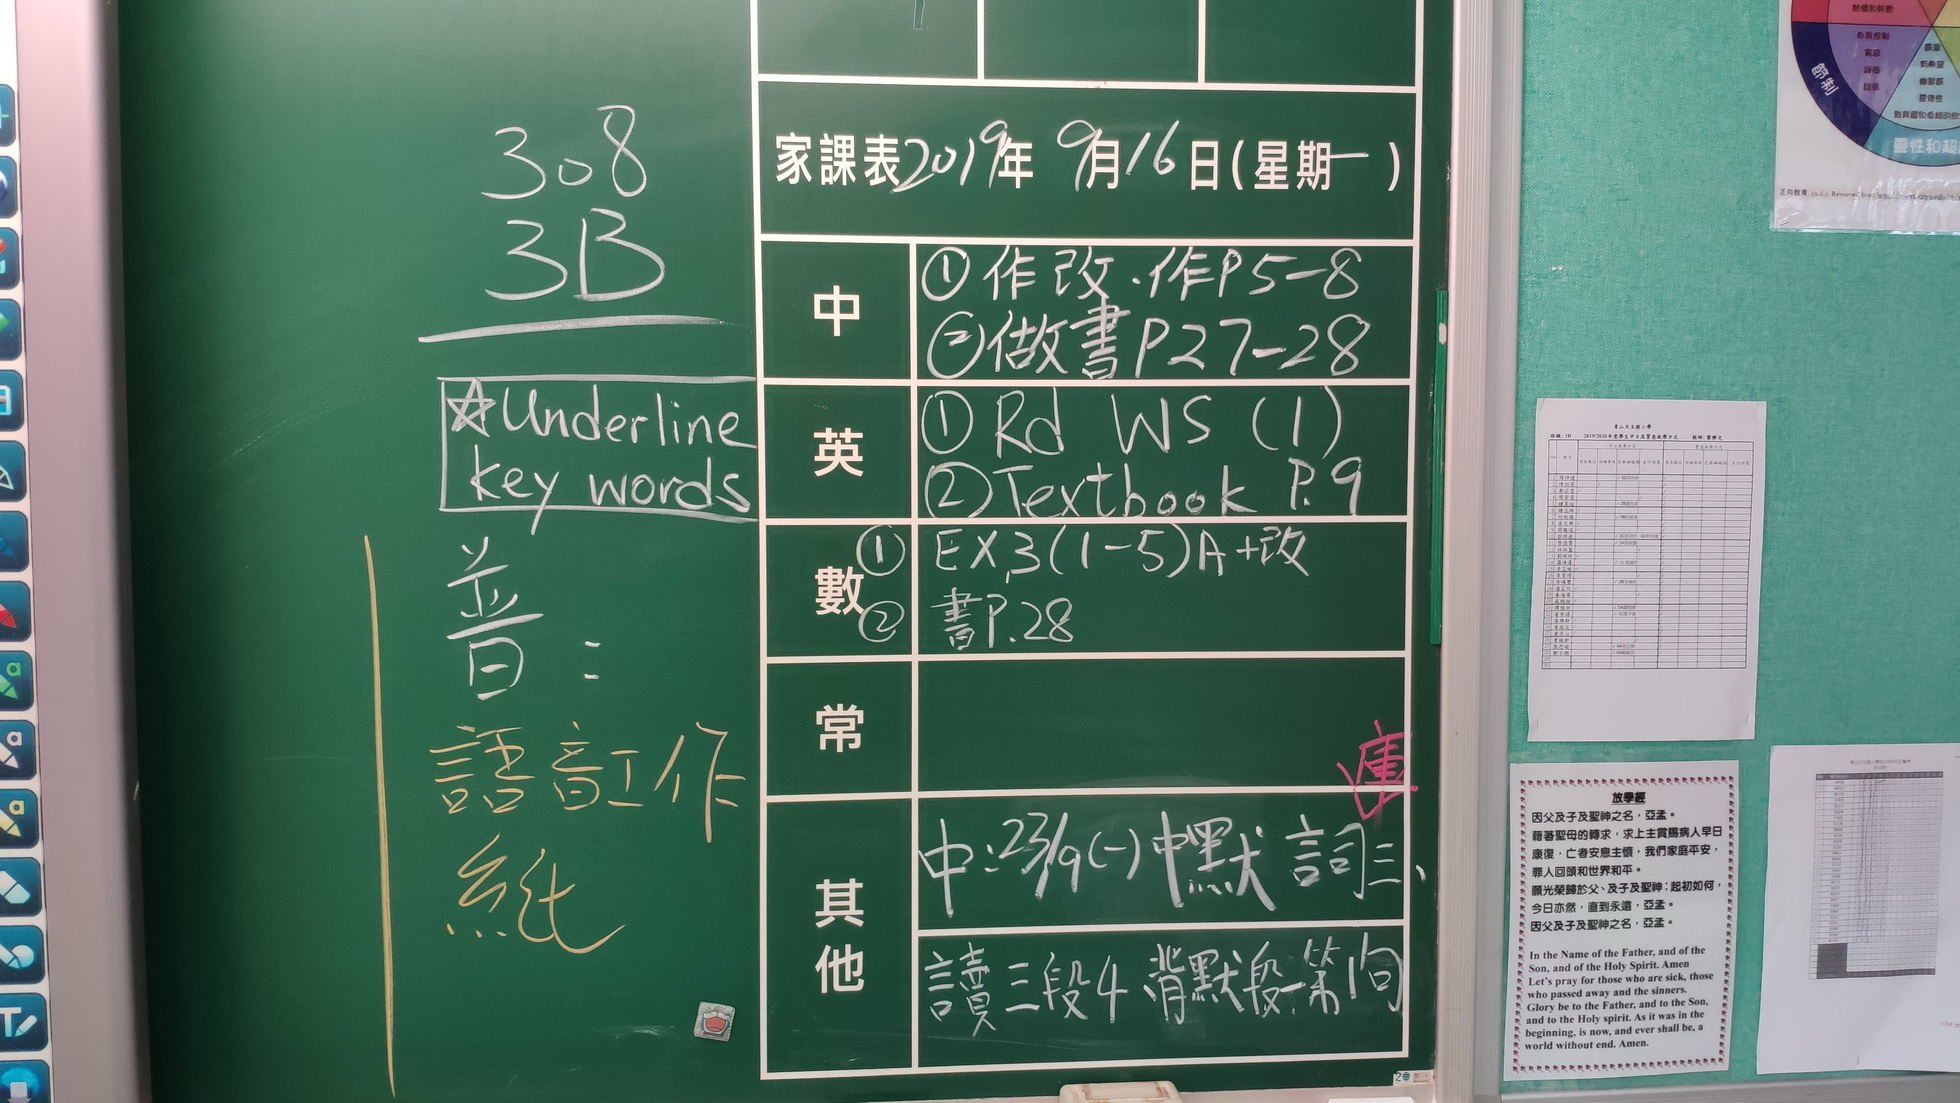 308
3B
☆Underline
key words
普：
語音訂作
紙
家課表2019年 9月16日(星期一)
中
①作改.作P5-8
②做書P27-28
英
①Rd WS (1)
②Textbook P.9
數
①EX3(1-5)A+改
②書P.28
常
其他
中:23/9(一)中默 詞三、
讀三段4 背默段一第1句
節制
靈性和超
放學經
因父及子及聖神之名，亞孟。
藉著聖母的轉求，求上主賞賜病人早日
康復，亡者安息主懷，我們家庭平安，
罪人回頭和世界和平。
願光榮歸於父、及子及聖神；起初如何，
今日亦然，直到永遠，亞孟。
因父及子及聖神之名，亞孟。
In the Name of the Father, and of the
Son, and of the Holy Spirit. Amen
Let's pray for those who are sick, those
who passed away and the sinners.
Glory be to the Father, and to the Son,
and to the Holy spirit. As it was in the
beginning, is now, and ever shall be, a
world without end. Amen.